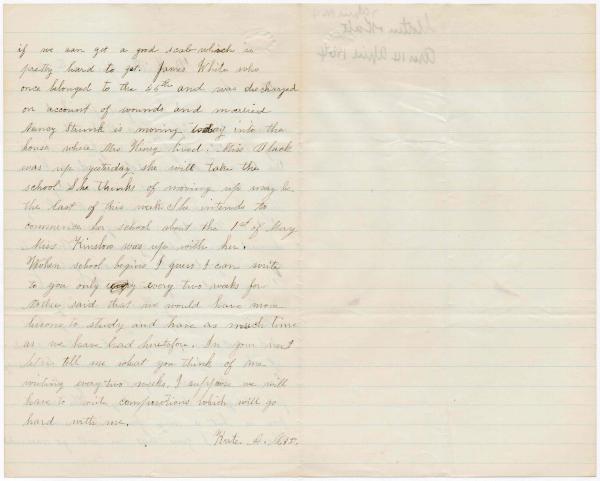 if we can get a good scab which is
pretty hard to get. James White who
once belonged to the 46th and was discharged
on account of wounds and married
Nancy Strunk is moving today into the
house where Mrs Henry lived. Miss
was up yesterday she will take the
school She thinks of moving up may be
the last of this week. She intends to
commence her school about the 1st of May
Miss Kinslow was up with her.
When school begins I guess I can write
to you only every two weeks for
Mother said that we would have more
lessons to study and have as much time
as we have had heretofore. In your next
letter tell me what you think of me
writing every two weeks. I suppose we will
have to write compositions which will go
hard with me.
Kate. A.